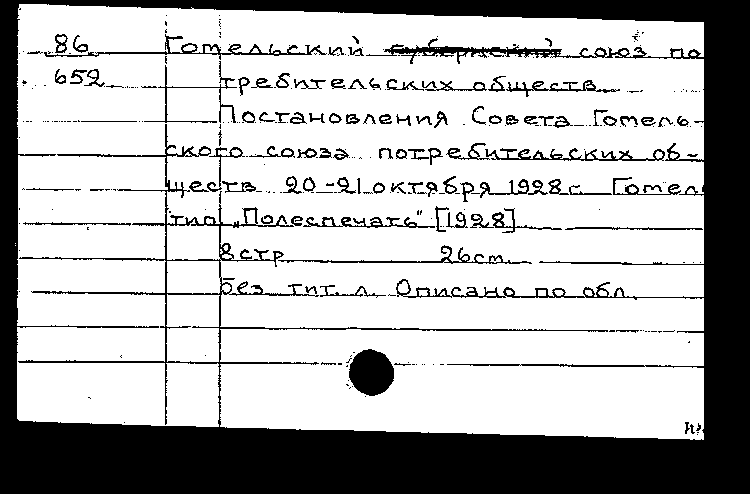 86 Гомельский губернский союз по
652 требительских обществ.
Постановления Совета Гомель-
ского союза потребительских об-
ществ 20-21 октября 1928 г. Гомель
тип. „Полеспечать" [1928]
8 стр. 26 cm.
Без тит. л. Описано по обл.